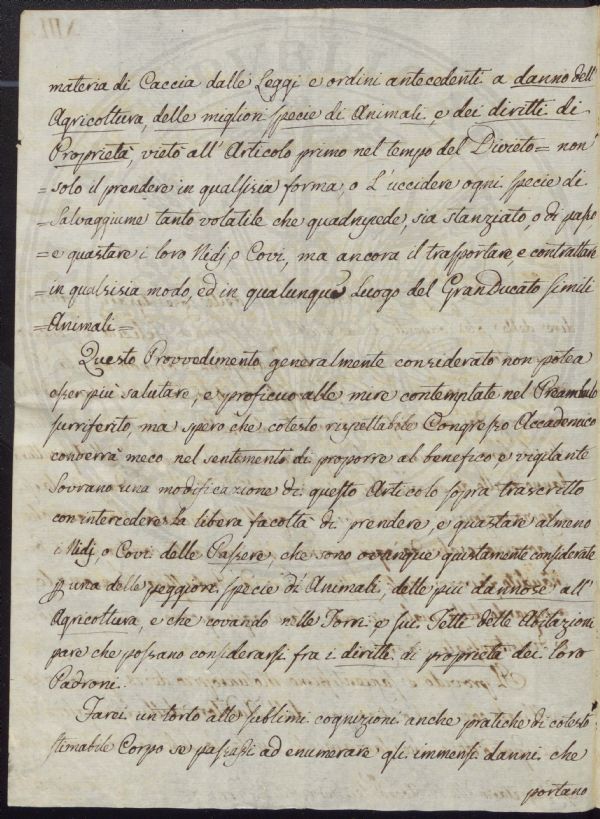 materia di Caccia dalle Leggi e ordini antecedenti a danno dell'
Agricoltura, delle migliori specie di Animali, e dei diritti di
Proprietà, vietò all' Articolo primo nel tempo del Divieto = non
= solo il prendere in qualsisia forma, o L'uccidere ogni specie di
= Salvaggiume tanto volatile che quadrupede, sia stanziato, o di passo
= e guastare i loro Nidj, o Covi, ma ancora il trasportare, e contrattare
= in qualsisia modo, ed in qualunque Luogo del GranDucato simili
= Animali =
Questo Provvedimento generalmente considerato non potea
esser più salutare, e proficuo alle mire contemplate nel Preambulo
surriferito, ma spero che cotesto rispettabile Congresso Accademico
converrà meco nel sentimento di proporre al benefico e vigilante
Sovrano una modificazione di questo Articolo sopra trascritto
con intercedere la libera facoltà di prendere, e guastare almeno
i Nidj, o Covi delle Passere, che sono ovunque giustamente considerate
p una delle peggiori specie di Animali, delle più dannose all'
Agricoltura, e che covando nelle Torri e sui Tetti delle Abitazioni
pare che possano considerarsi fra i diritti di proprietà dei loro
Padroni.
Farei un torto alle sublimi cognizioni anche pratiche di cotesto
stimabile Corpo se passassi ad enumerare gli immensi danni che
portano